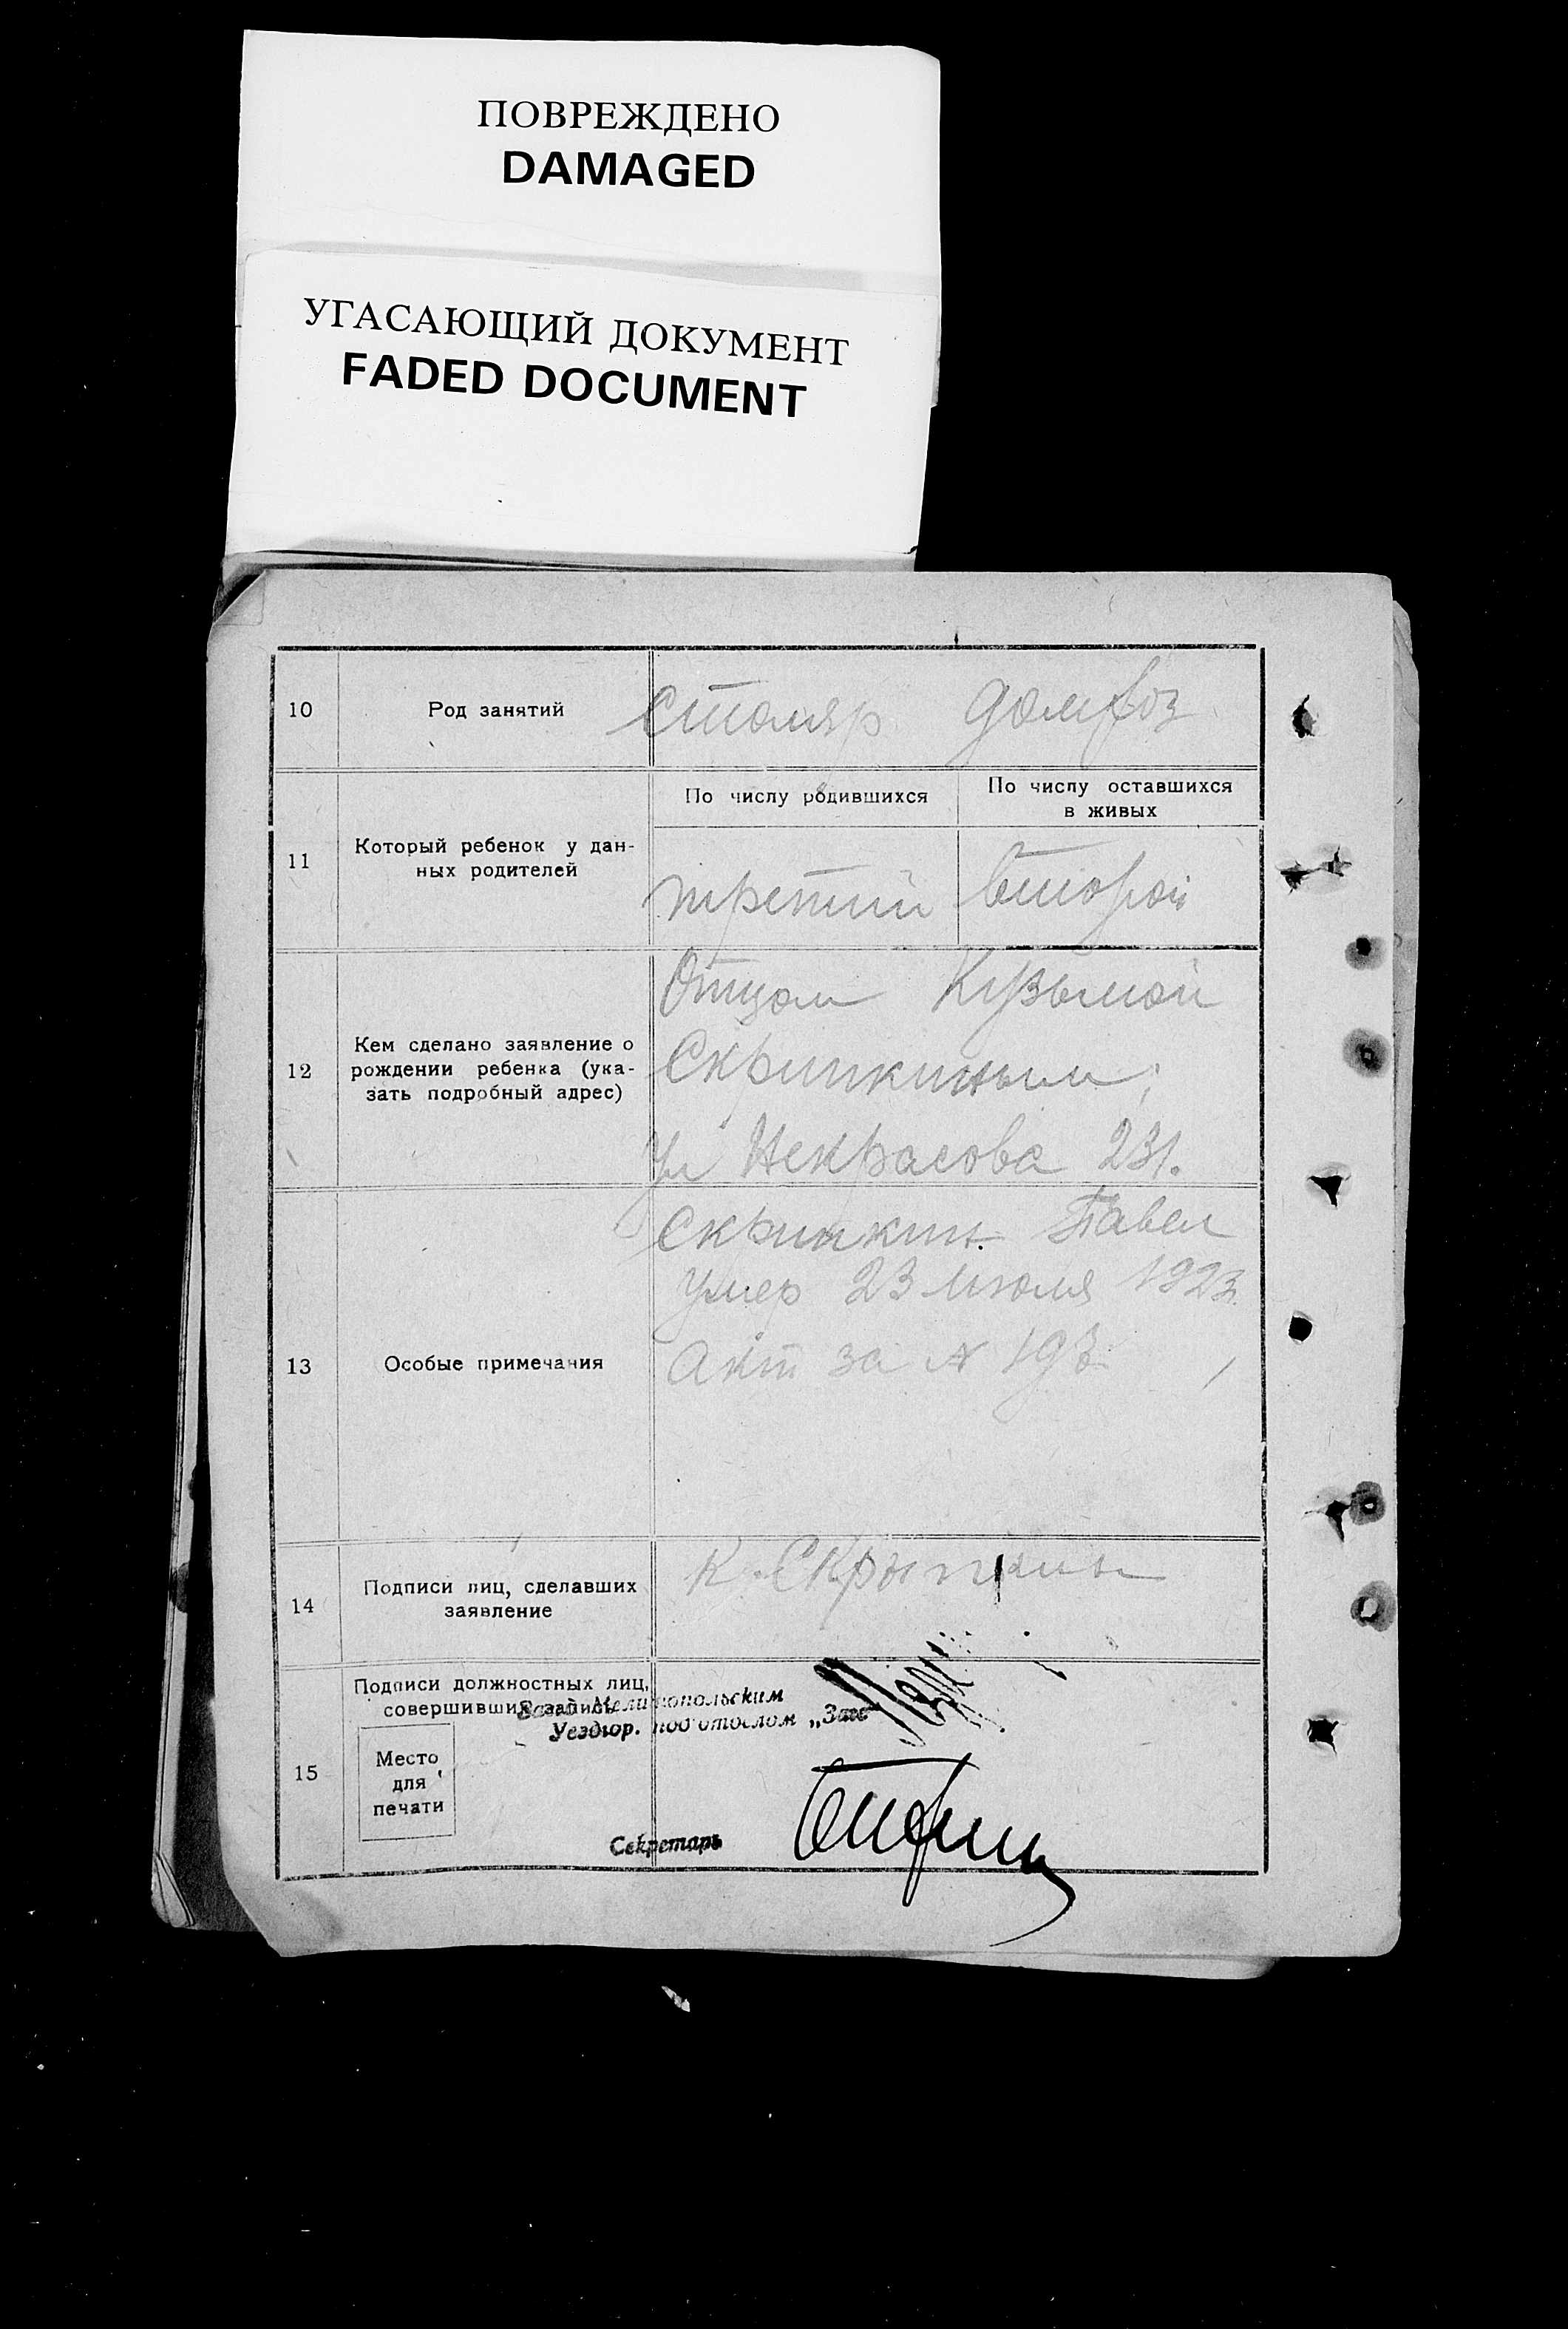 ПОВРЕЖДЕНО
DAMAGED
УГАСАЮЩИЙ ДОКУМЕНТ
FADED DOCUMENT
10 Род занятий столяр домхоз
11 Который ребенок у дан-
ных родителей
По числу родившихся
По числу оставшихся
в живых
третий второй
12 Кем сделано заявление о
рождении ребенка (ука-
зать подробный адрес)
Отцом Кузьмой
Скрипкиным;
ул Некрасова 231.
13 Особые примечания
Скрипкин Павел
умер 23 июля 1923.
Акт за N
14 Подписи лиц, сделавших
заявление
К. Скрыпкин
15 Подписи должностных лиц,
совершивших запись
Мелитопольским
Уездюр. подотделом „Загс"
Место
для
печати
Секретарь